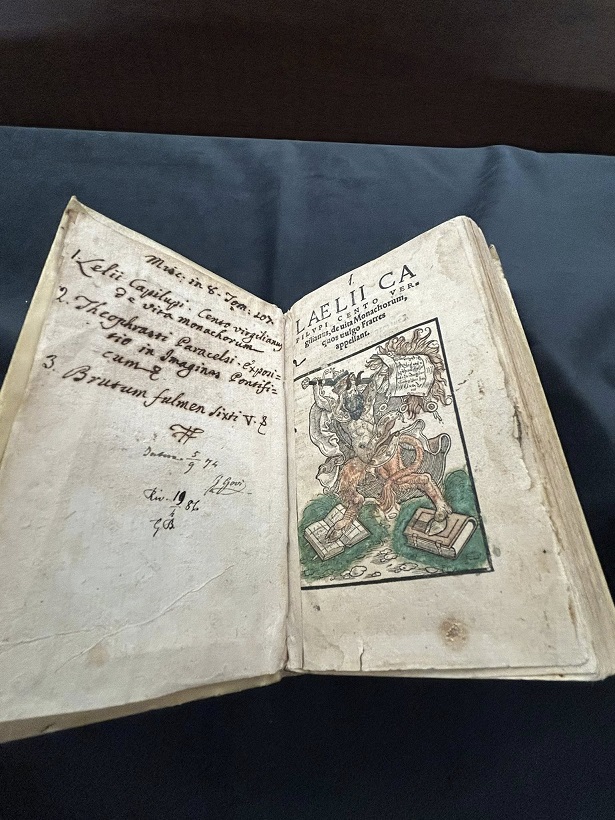 Misc. in 8.
1. Lelii Capilupi. Cento virgilianus
de vita monachorum
2. Theophrasti Paracelsi. exposi=
tio in Imagines Pontifi=
cum
3. Brutum fulmen Sixti V.
5
9 74
G. Govi
19
86
GB
1.
LAELII CA
PILVPI CENTO VER=
gilianus, de uita Monachorum,
quos uulgo Fratres
appellant.